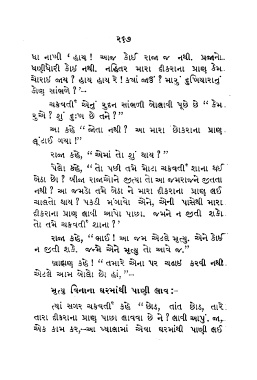 ૨૬૭
ધા નાખી ' હાય ! આજ કોઈ રાજા જ નથી. પ્રજાનો
ધણીધોરી કોઈ નથી. નહિતર મારા દીકરાના પ્રાણ કેમ
ચોરાઈ જાય ? હાય હાય રે ! કયાં જાઉં ? મારું દુખિયારાનું
કોણ સાંભળે ?'-
ચક્રવર્તી એનું રુદન સાંભળી બોલાવી પૂછે છે " કેમ
રુએ ? શું દુઃખ છે તને ?"
આ કહે " જોતા નથી ? આ મારા છોકરાના પ્રાણ
લૂંટાઈ ગયા !"
રાજા કહે, " એમાં તો શું થાય ? "
પેલો કહે, " તો પછી તમે મોટા ચક્રવર્તી શાના થઈ
બેઠા છો ? બીજા રાજાઓને જીત્યા તો આ જમરાજને જીતતા
નથી ? આ જમડો તમે બેઠા ને મારા દીકરાના પ્રાણ લઈ
ચાલતો થાય ? પકડી મંગાવો એને, એની પાસેથી મારા
દીકરાના પ્રાણ લાવી આપો પાછા. જમને ન જીતી શકો
તો તમે ચક્રવર્તી શાના ?'
રાજા કહે, " ભાઈ ! આ જમ એટલે મૃત્યુ. એને કોઈ
ન જીતી શકે. જન્મે એને મૃત્યુ તો આવે જ."
બ્રાહ્મણ કહે ! " તમારે એના પર ચઢાઈ કરવી નથી
એટલે આમ બોલો છો હાં,"–
મૃત્યુ વિનાના ઘરમાંથી પાણી લાવ :-
ત્યાં સગર ચક્રવર્તી કહે " છોડ, તાંત છોડ, તારે
તારા દીકરાના પ્રાણ પાછા લાવવા છે ને ? લાવી આપું. જા,
એક કામ કર,–આ પ્યાલામાં એવા ઘરમાંથી પાણી લઈ